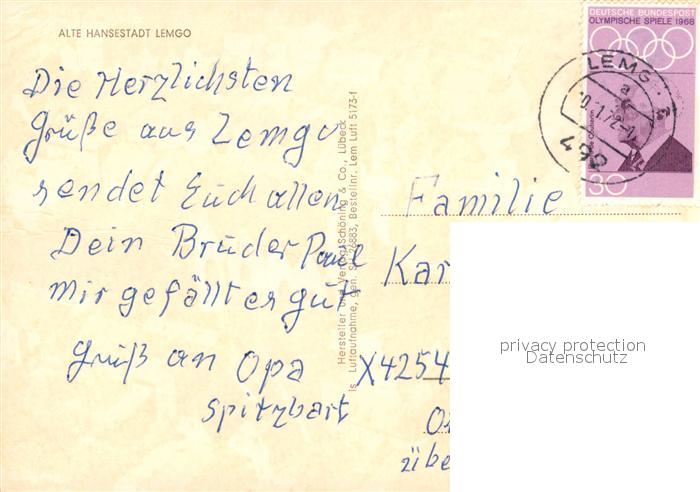 ALTE HANSESTADT LEMGO
Die Herzlichsten
Grüße aus Lemgo
sendet Euch allen
Dein Bruder Paul
Mir gefällt er gut
Gruß an Opa
Spitzbart
Hersteller und Verlag Schöning & Co., Lübeck
Luftaufnahme, gen. 26883, Bestellnr. Lem Luft 5173-f
DEUTSCHE BUNDESPOST
OLYMPISCHE SPIELE 1968
30
LEMG
a
492
Familie
Kar
X4254
übe
privacy protection
Datenschutz